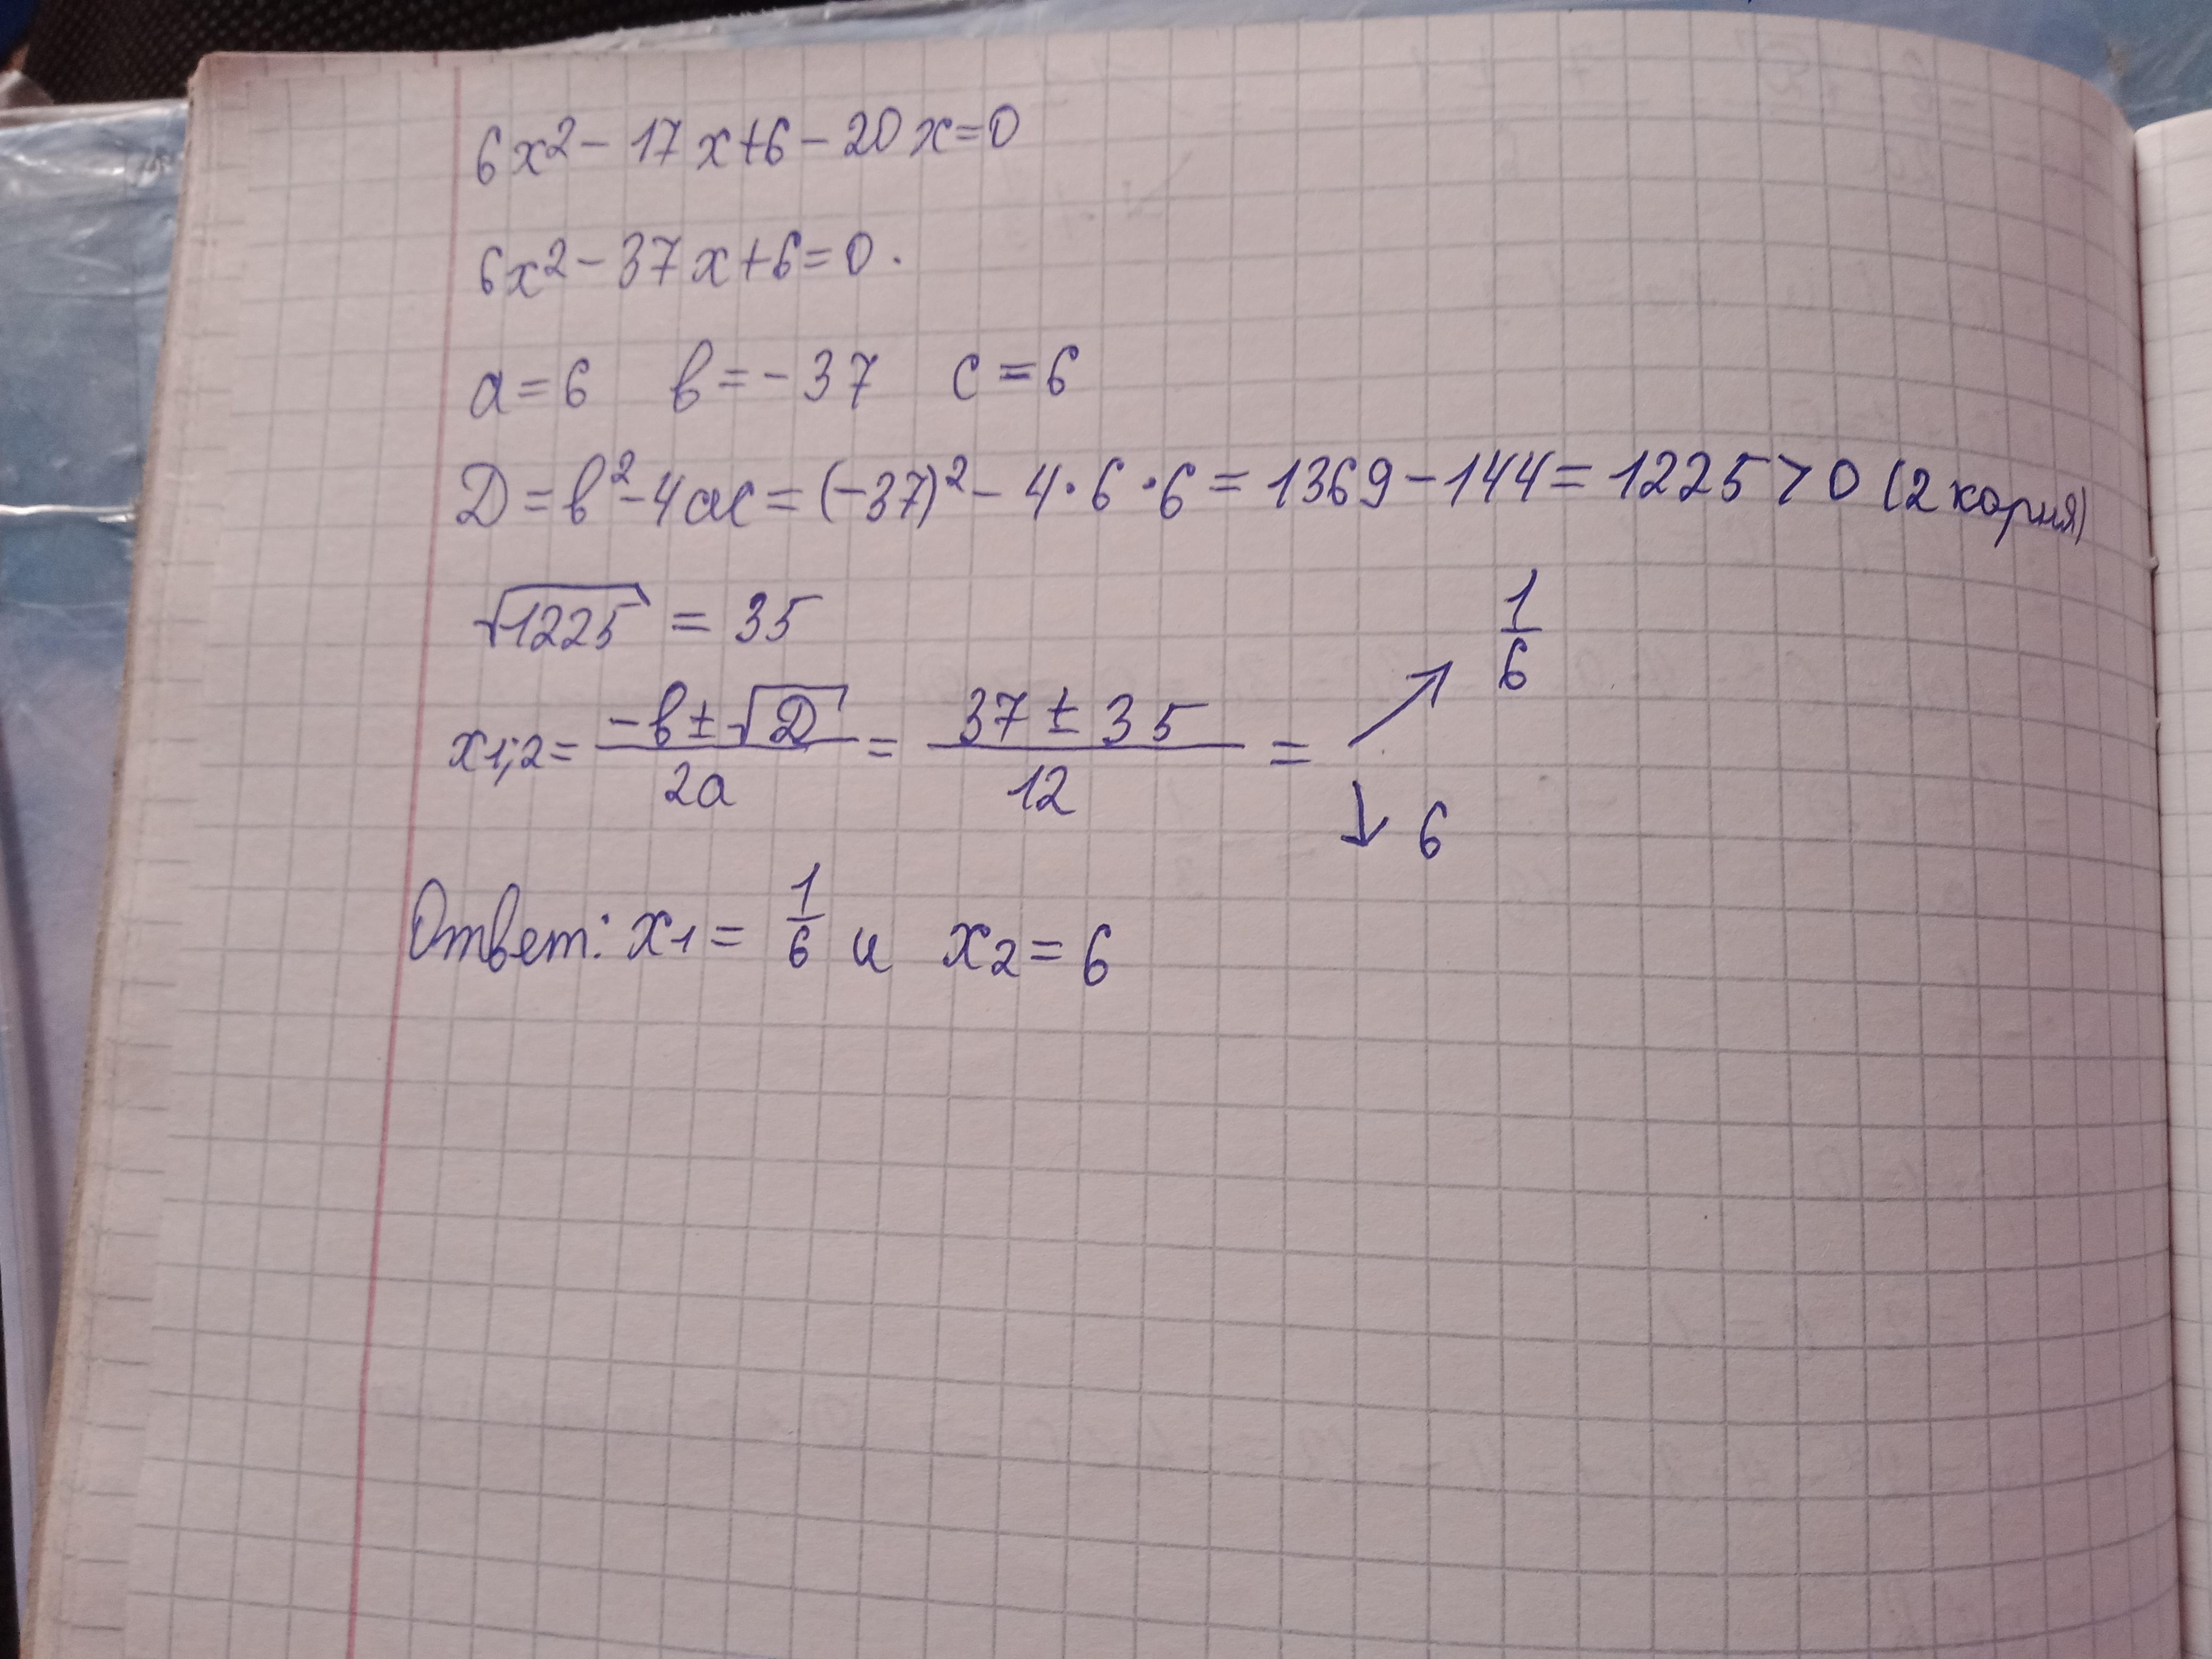 6x² - 17x + 6 - 20x = 0
6x² - 37x + 6 = 0.
a = 6 в = -37 c = 6
D = в² - 4ac = (-37)² - 4·6·6 = 1369 - 144 = 1225 > 0 (2 корня)
√1225 = 35
x1;2 = (-в ± √D)/2a = (37 ± 35)/12 = ↗ 1/6 ↓ 6
Ответ: x1 = 1/6 и x2 = 6